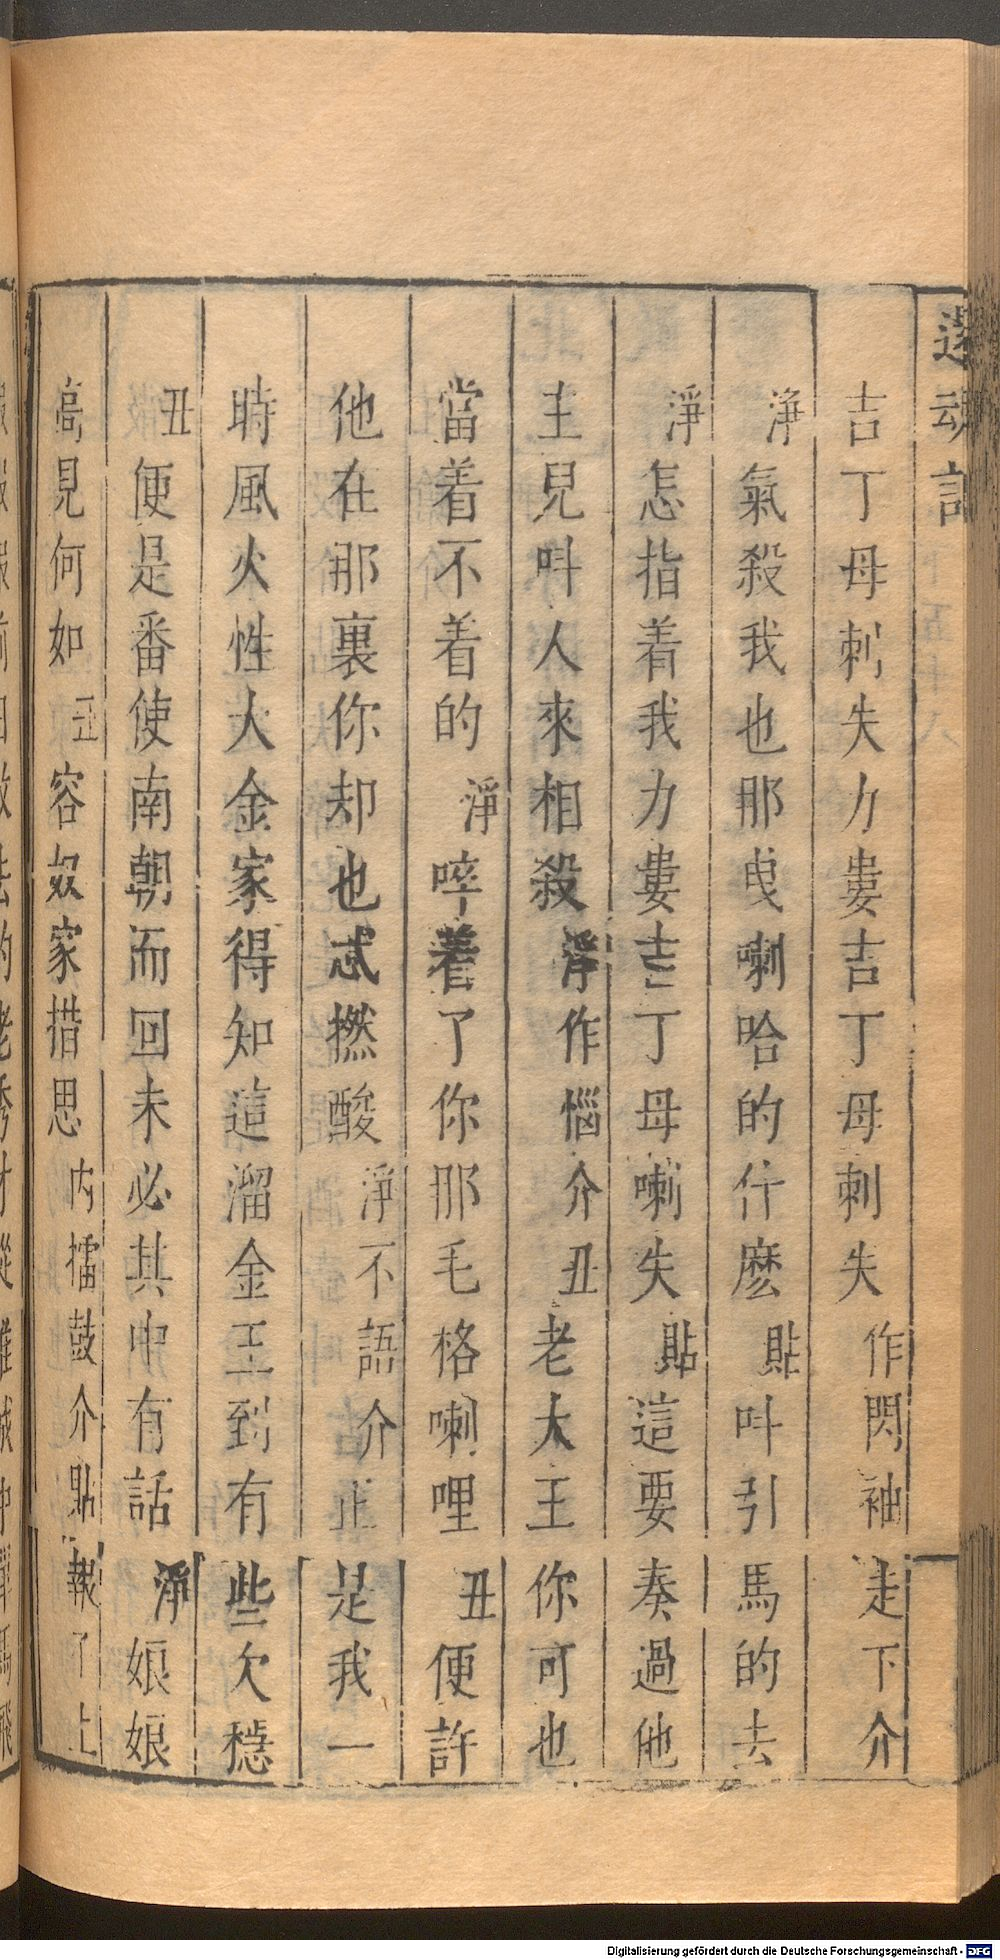 還魂記
吉丁母刺失力婁吉丁母刺失 作閃袖走下介
淨 氣殺我也那曳喇哈的什麽 貼 叫引馬的去
淨 怎指着我力婁吉丁母喇失 貼 這要奏過他
主兒叫人來相殺 淨作惱介 丑 老大王你可也
當着不着的 淨 啐着了你那毛格喇哩 丑 便許
他在那裏你却也忒撚酸 淨不語介 正是我一
時風火性大金家得知這溜金王到有些欠穩
丑 便是番使南朝而回未必其中有話 淨 娘娘
高見何如 丑 容奴家措思 內擂鼓介 貼 報了上
Digitalisierung gefördert durch die Deutsche Forschungsgemeinschaft - DFG